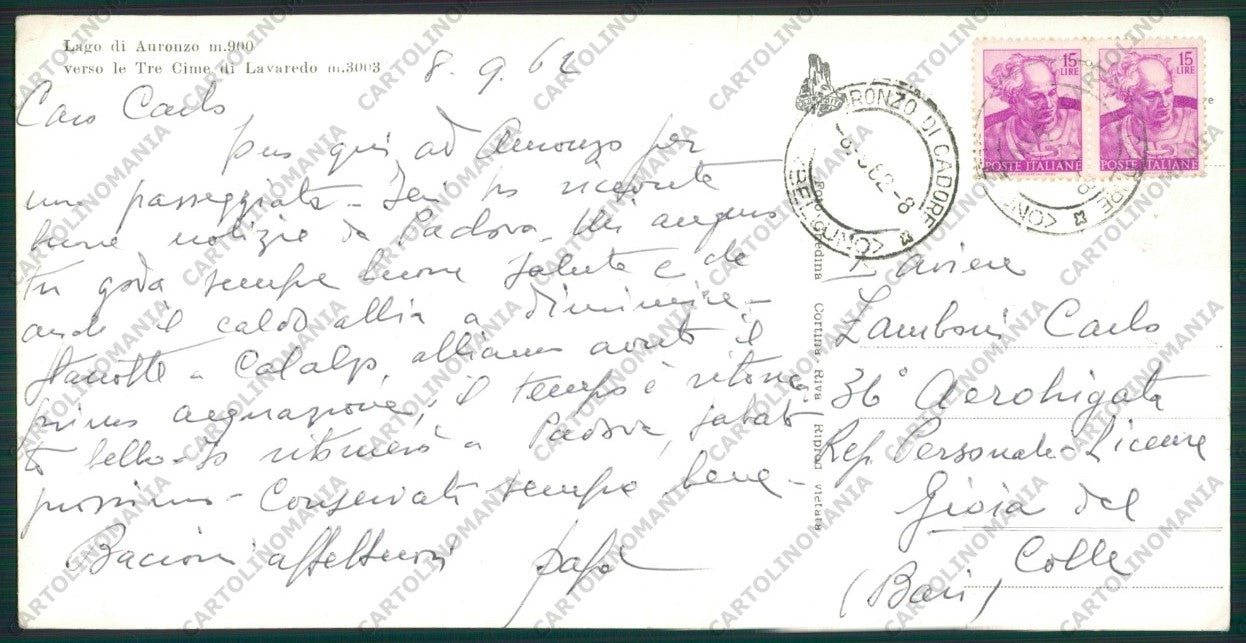 Lago di Auronzo m.900
verso le Tre Cime di Lavaredo m.3003
8. 9. 62
Caro Carlo
qui ad Auronzo per
una passeggiata - Ieri ho ricevuto
tue notizie da Padova - Mi auguro
tu goda sempre buona salute e che
anche il caldo abbia a diminuire -
Stanotte a Calalzo abbiamo avuto il
primo acquazzone, il tempo è ritorna
to bello - Io ritornerò a Padova, sabato
prossimo - Conservati sempre bene -
Bacioni affettuosi papà
15
LIRE
POSTE ITALIANE
15
LIRE
POSTE ITALIANE
AURONZO DI CADORE
(BELLUNO)
-8
Foto Ghedina Cortina Riva Riprod vietata
L'Aviere
Zamboni Carlo
36° Aerobrigata
Rep. Personale Licenze
Gioia del
Colle
(Bari)
CARTOLINOMANIA